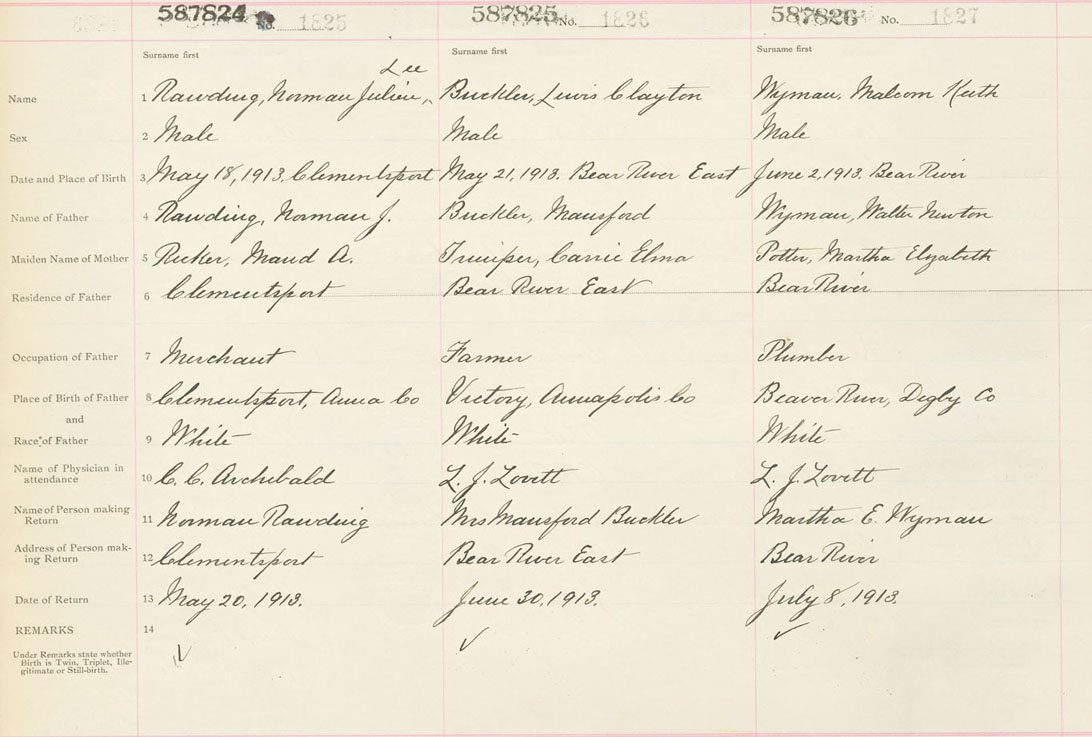 587824 No. 1825 587825 No. 1826 587826 No. 1827
Surname first Surname first Surname first
Lee
Name 1 Rawding, Norman Julien, Buckler, Lewis Clayton Wyman, Malcom Keith
Sex 2 Male Male Male
Date and Place of Birth 3 May 18, 1913. Clementsport May 21, 1913. Bear River East June 2, 1913. Bear River
Name of Father 4 Rawding, Norman J. Buckler, Mansford Wyman, Walter Newton
Maiden Name of Mother 5 Rucker, Maud A. Juniper, Carrie Elma Potter, Martha Elizabeth
Residence of Father 6 Clementsport Bear River East Bear River
Occupation of Father 7 Merchant Farmer Plumber
Place of Birth of Father 8 Clementsport, Anna Co Victory, Annapolis Co Beaver River, Digby Co
and
Race of Father 9 White White White
Name of Physician in
attendance 10 C. C. Archibald L. J. Lovitt L. J. Lovitt
Name of Person making
Return 11 Norman Rawding Mrs Mansford Buckler Martha E. Wyman
Address of Person mak-
ing Return 12 Clementsport Bear River East Bear River
Date of Return 13 May 20, 1913. June 30, 1913. July 8, 1913.
REMARKS 14
Under Remarks state whether
Birth is Twin, Triplet, Ille-
gitimate or Still-birth.